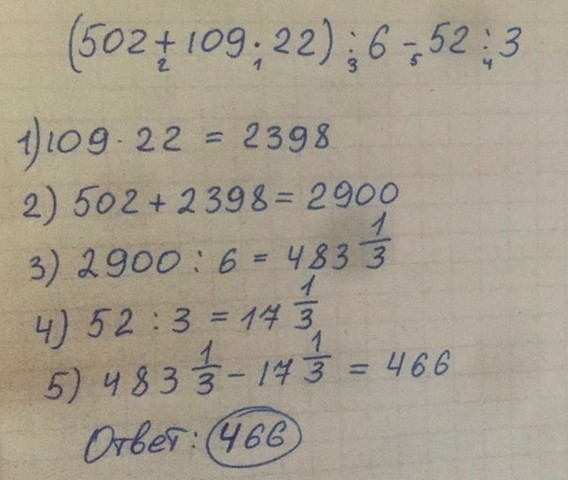 (502 + 109 · 22) : 6 - 52 : 3
2 1 3 5 4
1) 109 · 22 = 2398
2) 502 + 2398 = 2900
3) 2900 : 6 = 483 1/3
4) 52 : 3 = 17 1/3
5) 483 1/3 - 17 1/3 = 466
Ответ: 466